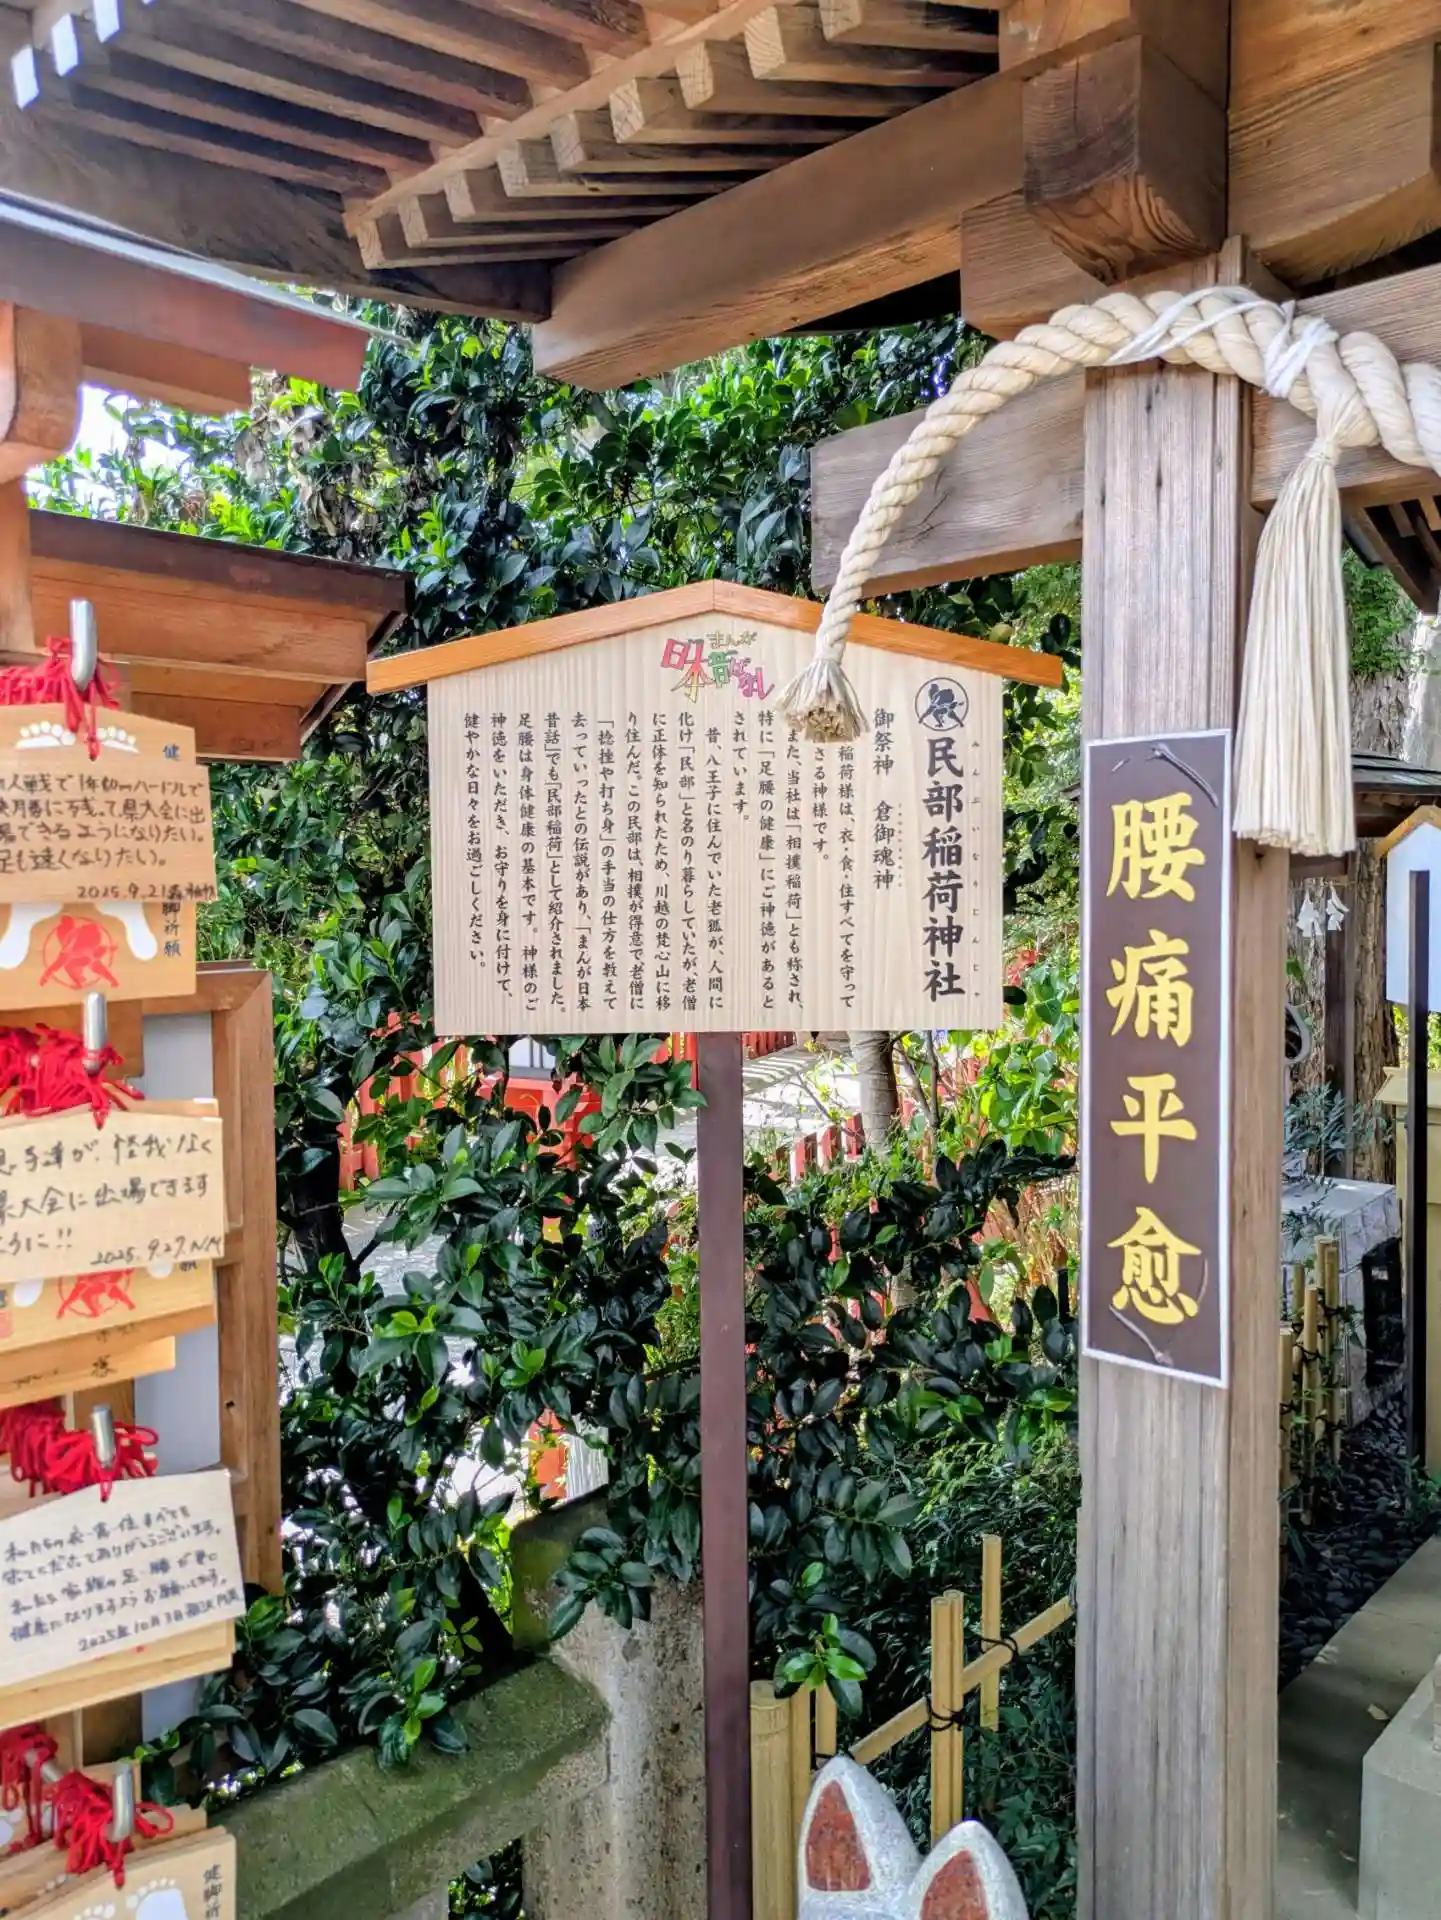 まんが
日本
昔ばなし
民部稲荷神社
みんぶいなりじんじゃ
御祭神 倉御魂神
稲荷様は、衣・食・住すべてを守って
さる神様です。
また、当社は「相撲稲荷」とも称され、
特に「足腰の健康」にご神徳があると
されています。
昔、八王子に住んでいた老狐が、人間に
化け「民部」と名のり暮らしていたが、老僧
に正体を知られたため、川越の梵心山に移
り住んだ。この民部は、相撲が得意で、老僧に
「捻挫や打ち身」の手当の仕方を教えて
去っていったとの伝説があり、「まんが日本
昔話」でも「民部稲荷」として紹介されました。
足腰は身体健康の基本です。神様のご
神徳をいただき、お守りを身に付けて、
健やかな日々をお過ごしください。
腰痛平愈
健
人戦で1年60mハードルで
決勝に残って県大会に出
場できるようになりたい。
足も速くなりたい。
2025.9.21
脚祈願
手達が、怪我なく
県大会に出場できます
ように!!
2025.9.27.N.M
願
私たちの衣・食・住すべてを
守ってくださってありがとうございます。
私たち家族の足・腰が更に
健康になりますようお願いします。
2025年10月3日
健脚祈